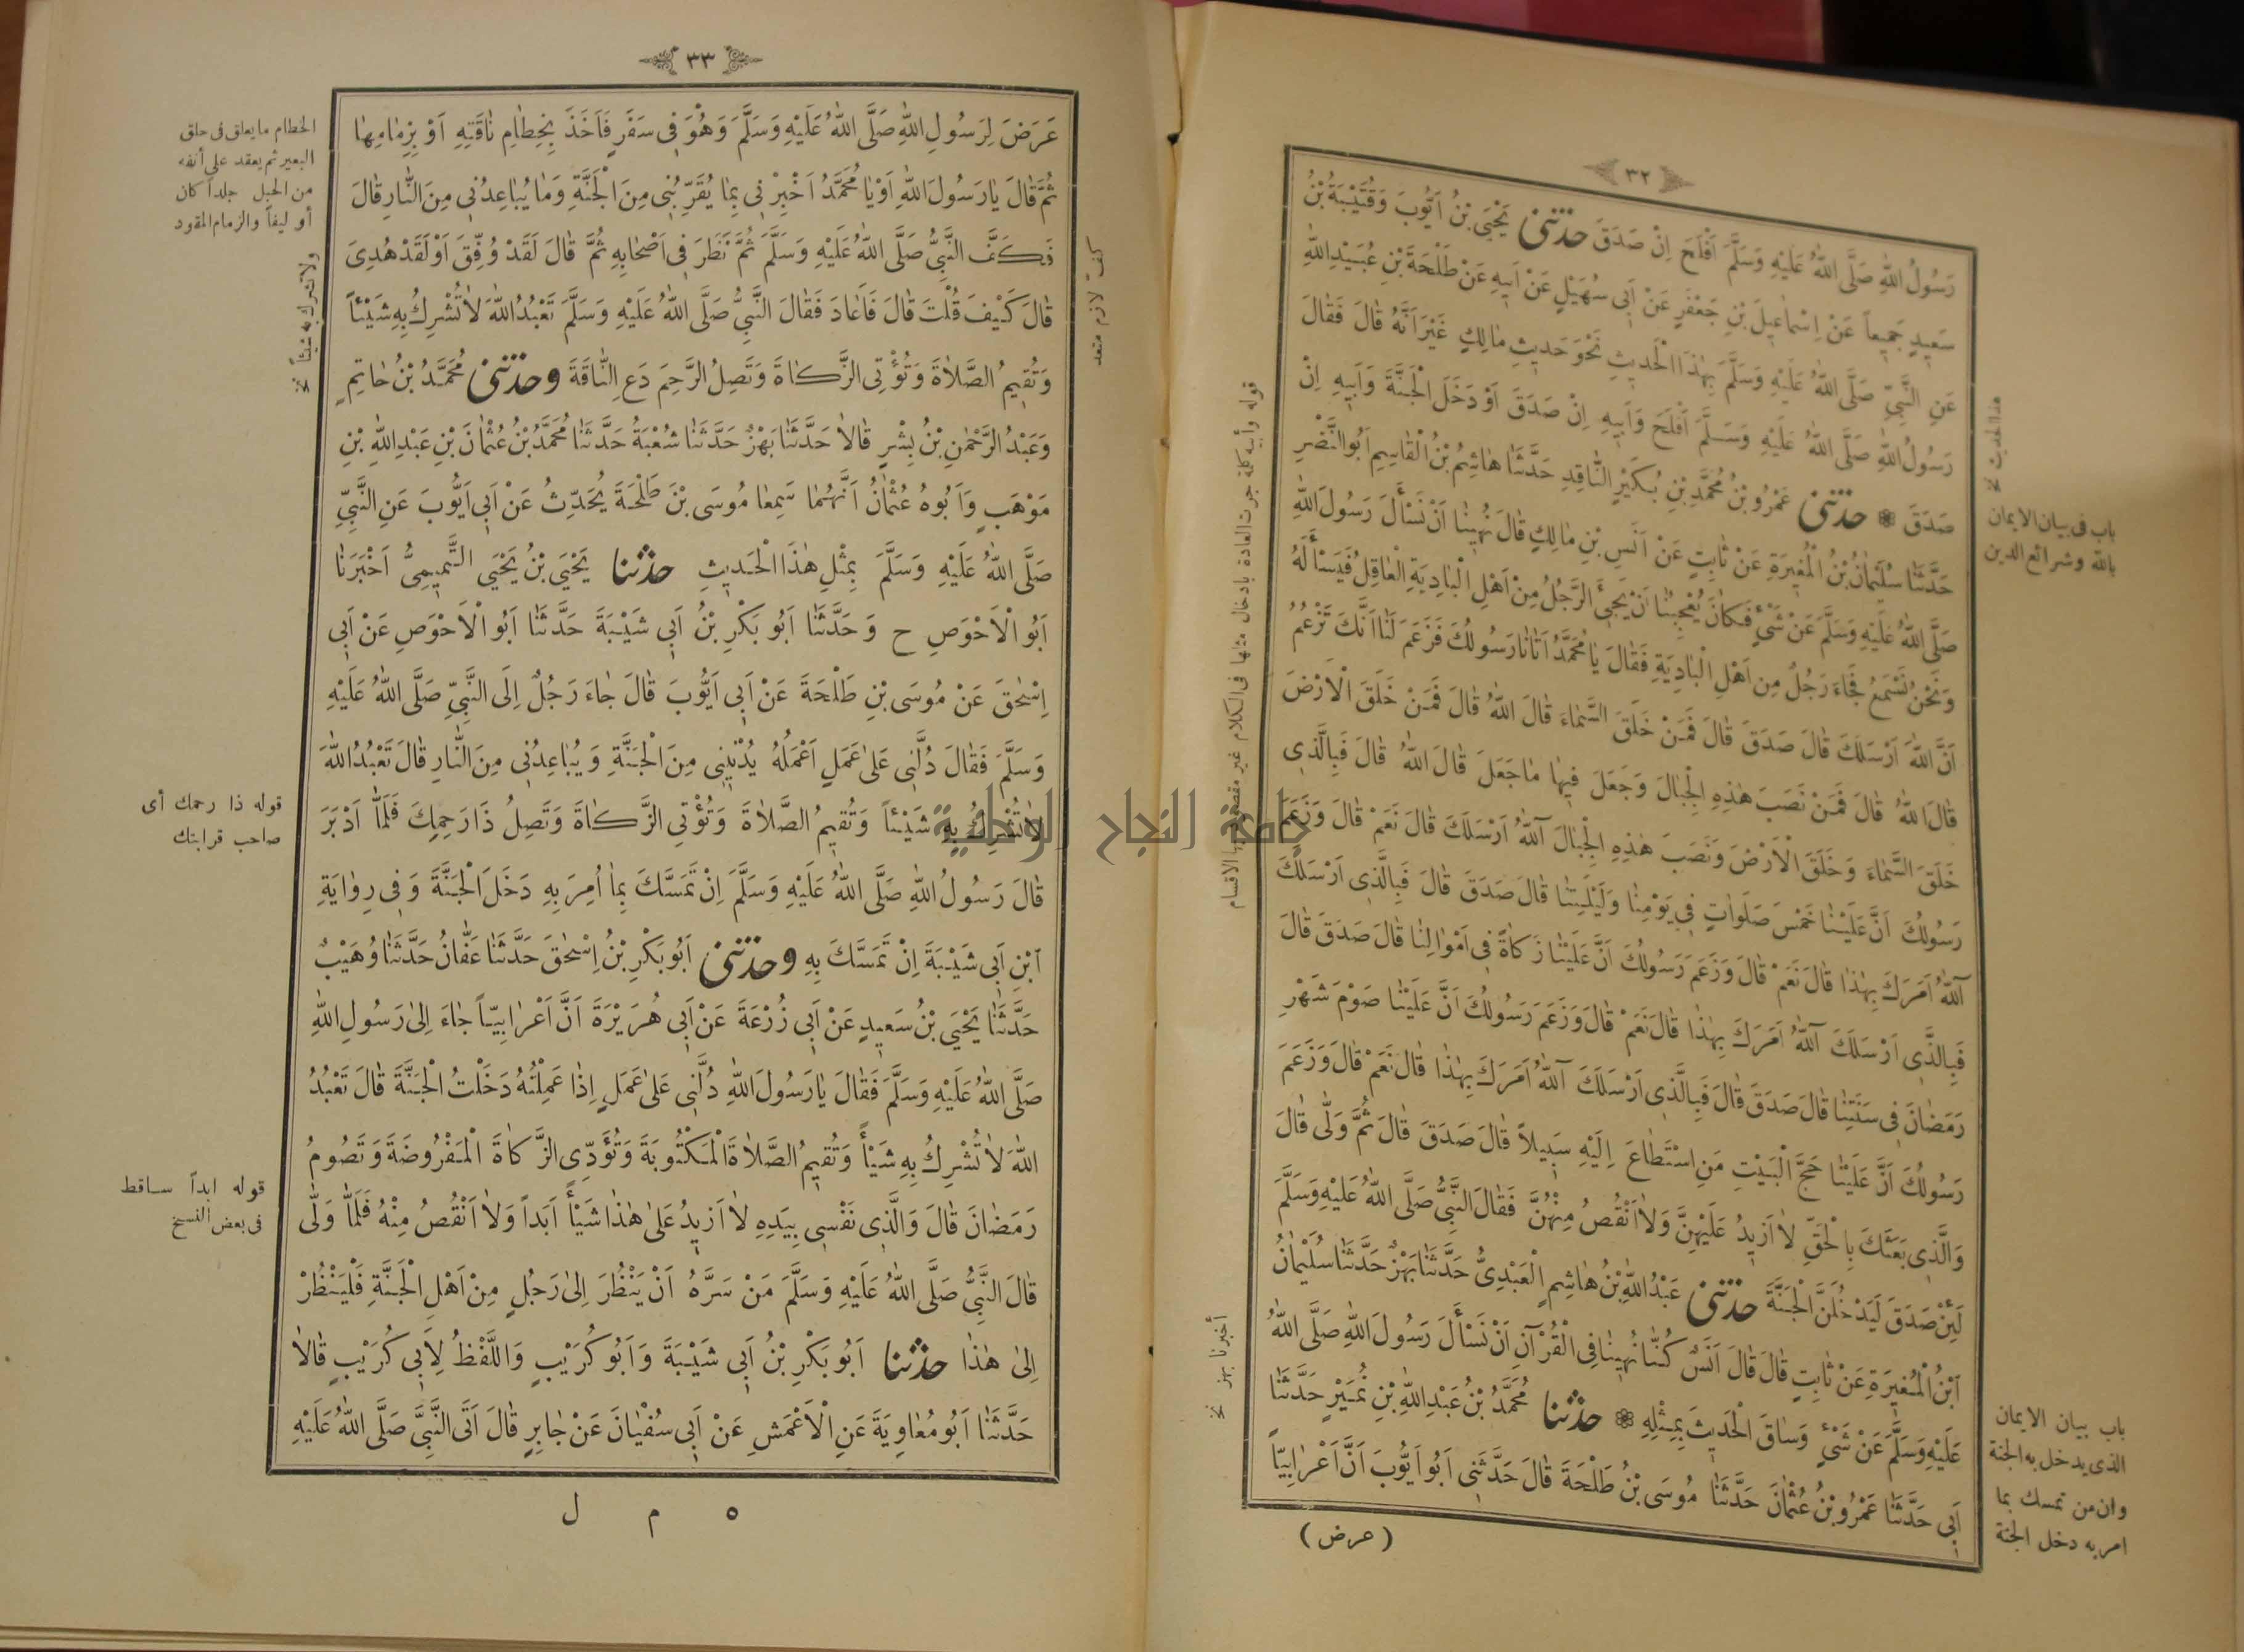 ٣٢
رَسُولُ اللهِ صَلَّى اللهُ عَلَيْهِ وَسَلَّمَ اَفْلَحَ اِنْ صَدَقَ حدثنى يَحْيَى بْنُ اَيُّوبَ وَقُتَيْبَةُ بْنُ
سَعِيدٍ جَمِيعاً عَنْ اِسْمَاعِيلَ بْنِ جَعْفَرٍ عَنْ اَبِى سُهَيْلٍ عَنْ اَبِيهِ عَنْ طَلْحَةَ بْنِ عُبَيْدِاللهِ
عَنِ النَّبِيِّ صَلَّى اللهُ عَلَيْهِ وَسَلَّمَ بِهٰذَا الْحَدِيثِ نَحْوَ حَدِيثِ مَالِكٍ غَيْرَ اَنَّهُ قَالَ فَقَالَ
رَسُولُ اللهِ صَلَّى اللهُ عَلَيْهِ وَسَلَّمَ اَفْلَحَ وَاَبِيهِ اِنْ صَدَقَ اَوْ دَخَلَ الْجَنَّةَ وَاَبِيهِ اِنْ
صَدَقَ ❁ حدثنى عَمْرُو بْنُ مُحَمَّدِ بْنِ بُكَيْرٍ النَّاقِدِ حَدَّثَنَا هَاشِمُ بْنُ الْقَاسِمِ اَبُوالنَّضْرِ
حَدَّثَنَا سُلَيْمَانُ بْنُ الْمُغِيرَةِ عَنْ ثَابِتٍ عَنْ اَنَسِ بْنِ مَالِكٍ قَالَ نُهِينَا اَنْ نَسْأَلَ رَسُولَ اللهِ
صَلَّى اللهُ عَلَيْهِ وَسَلَّمَ عَنْ شَىْءٍ فَكَانَ يُعْجِبُنَا اَنْ يَجِىءَ الرَّجُلُ مِنْ اَهْلِ الْبَادِيَةِ الْعَاقِلُ فَيَسْأَلَهُ
وَنَحْنُ نَسْمَعُ فَجَاءَ رَجُلٌ مِنْ اَهْلِ الْبَادِيَةِ فَقَالَ يَا مُحَمَّدُ اَتَانَا رَسُولُكَ فَزَعَمَ لَنَا اَنَّكَ تَزْعُمُ
اَنَّ اللهَ اَرْسَلَكَ قَالَ صَدَقَ قَالَ فَمَنْ خَلَقَ السَّمَاءَ قَالَ اللهُ قَالَ فَمَنْ خَلَقَ الْاَرْضَ
قَالَ اللهُ قَالَ فَمَنْ نَصَبَ هٰذِهِ الْجِبَالَ وَجَعَلَ فِيهَا مَا جَعَلَ قَالَ اللهُ قَالَ فَبِالَّذِى
خَلَقَ السَّمَاءَ وَخَلَقَ الْاَرْضَ وَنَصَبَ هٰذِهِ الْجِبَالَ آللهُ اَرْسَلَكَ قَالَ نَعَمْ قَالَ وَزَعَمَ
رَسُولُكَ اَنَّ عَلَيْنَا خَمْسَ صَلَوَاتٍ فِى يَوْمِنَا وَلَيْلَتِنَا قَالَ صَدَقَ قَالَ فَبِالَّذِى اَرْسَلَكَ
آللهُ اَمَرَكَ بِهٰذَا قَالَ نَعَمْ قَالَ وَزَعَمَ رَسُولُكَ اَنَّ عَلَيْنَا زَكَاةً فِى اَمْوَالِنَا قَالَ صَدَقَ قَالَ
فَبِالَّذِى اَرْسَلَكَ آللهُ اَمَرَكَ بِهٰذَا قَالَ نَعَمْ قَالَ وَزَعَمَ رَسُولُكَ اَنَّ عَلَيْنَا صَوْمَ شَهْرِ
رَمَضَانَ فِى سَنَتِنَا قَالَ صَدَقَ قَالَ فَبِالَّذِى اَرْسَلَكَ آللهُ اَمَرَكَ بِهٰذَا قَالَ نَعَمْ قَالَ وَزَعَمَ
رَسُولُكَ اَنَّ عَلَيْنَا حَجَّ الْبَيْتِ مَنِ اسْتَطَاعَ اِلَيْهِ سَبِيلاً قَالَ صَدَقَ قَالَ ثُمَّ وَلّٰى قَالَ
وَالَّذِى بَعَثَكَ بِالْحَقِّ لَا اَزِيدُ عَلَيْهِنَّ وَلَا اَنْقُصُ مِنْهُنَّ فَقَالَ النَّبِىُّ صَلَّى اللهُ عَلَيْهِ وَسَلَّمَ
لَئِنْ صَدَقَ لَيَدْخُلَنَّ الْجَنَّةَ حدثنى عَبْدُ اللهِ بْنُ هَاشِمٍ الْعَبْدِىُّ حَدَّثَنَا بَهْزٌ حَدَّثَنَا سُلَيْمَانُ
ابْنُ الْمُغِيرَةِ عَنْ ثَابِتٍ قَالَ قَالَ اَنَسٌ كُنَّا نُهِينَا فِى الْقُرْآنِ اَنْ نَسْأَلَ رَسُولَ اللهِ صَلَّى اللهُ
عَلَيْهِ وَسَلَّمَ عَنْ شَىْءٍ وَسَاقَ الْحَدِيثَ بِمِثْلِهِ ❁ حدثنا مُحَمَّدُ بْنُ عَبْدِ اللهِ بْنِ نُمَيْرٍ حَدَّثَنَا
اَبِى حَدَّثَنَا عَمْرُو بْنُ عُثْمَانَ حَدَّثَنَا مُوسَى بْنُ طَلْحَةَ قَالَ حَدَّثَنِى اَبُو اَيُّوبَ اَنَّ اَعْرَابِيّاً
( عرض )
هذا الحديث نخ
باب فى بيان الايمان
بالله وشرائع الدين
باب بيان الايمان
الذى يدخل به الجنة
وان من تمسك بما
امر به دخل الجنة
قوله وأبيه كلمة جرت العادة بادخال مثلها فى الكلام غير مقصود بها الاقسام
أخبرنا بهز نخ
٣٣
عَرَضَ لِرَسُولِ اللهِ صَلَّى اللهُ عَلَيْهِ وَسَلَّمَ وَهُوَ فِى سَفَرٍ فَاَخَذَ بِخِطَامِ نَاقَتِهِ اَوْ بِزِمَامِهَا
ثُمَّ قَالَ يَا رَسُولَ اللهِ اَوْ يَا مُحَمَّدُ اَخْبِرْنِى بِمَا يُقَرِّبُنِى مِنَ الْجَنَّةِ وَمَا يُبَاعِدُنِى مِنَ النَّارِ قَالَ
فَكَفَّ النَّبِىُّ صَلَّى اللهُ عَلَيْهِ وَسَلَّمَ ثُمَّ نَظَرَ فِى اَصْحَابِهِ ثُمَّ قَالَ لَقَدْ وُفِّقَ اَوْ لَقَدْ هُدِىَ
قَالَ كَيْفَ قُلْتَ قَالَ فَاَعَادَ فَقَالَ النَّبِىُّ صَلَّى اللهُ عَلَيْهِ وَسَلَّمَ تَعْبُدُ اللهَ لَا تُشْرِكُ بِهِ شَيْئاً
وَتُقِيمُ الصَّلَاةَ وَتُؤْتِى الزَّكَاةَ وَتَصِلُ الرَّحِمَ دَعِ النَّاقَةَ وحدثنى مُحَمَّدُ بْنُ حَاتِمٍ
وَعَبْدُ الرَّحْمٰنِ بْنُ بِشْرٍ قَالَا حَدَّثَنَا بَهْزٌ حَدَّثَنَا شُعْبَةُ حَدَّثَنَا مُحَمَّدُ بْنُ عُثْمَانَ بْنِ عَبْدِ اللهِ بْنِ
مَوْهَبٍ وَاَبُوهُ عُثْمَانُ اَنَّهُمَا سَمِعَا مُوسَى بْنَ طَلْحَةَ يُحَدِّثُ عَنْ اَبِى اَيُّوبَ عَنِ النَّبِيِّ
صَلَّى اللهُ عَلَيْهِ وَسَلَّمَ بِمِثْلِ هٰذَا الْحَدِيثِ حدثنا يَحْيَى بْنُ يَحْيَى التَّمِيمِىُّ اَخْبَرَنَا
اَبُو الْاَحْوَصِ ح وَحَدَّثَنَا اَبُو بَكْرِ بْنُ اَبِى شَيْبَةَ حَدَّثَنَا اَبُو الْاَحْوَصِ عَنْ اَبِى
اِسْحٰقَ عَنْ مُوسَى بْنِ طَلْحَةَ عَنْ اَبِى اَيُّوبَ قَالَ جَاءَ رَجُلٌ اِلَى النَّبِيِّ صَلَّى اللهُ عَلَيْهِ
وَسَلَّمَ فَقَالَ دُلَّنِى عَلٰى عَمَلٍ اَعْمَلُهُ يُدْنِينِى مِنَ الْجَنَّةِ وَيُبَاعِدُنِى مِنَ النَّارِ قَالَ تَعْبُدُ اللهَ
لَا تُشْرِكُ بِهِ شَيْئاً وَتُقِيمُ الصَّلَاةَ وَتُؤْتِى الزَّكَاةَ وَتَصِلُ ذَا رَحِمِكَ فَلَمَّا اَدْبَرَ
قَالَ رَسُولُ اللهِ صَلَّى اللهُ عَلَيْهِ وَسَلَّمَ اِنْ تَمَسَّكَ بِمَا اُمِرَ بِهِ دَخَلَ الْجَنَّةَ وَفِى رِوَايَةِ
ابْنِ اَبِى شَيْبَةَ اِنْ تَمَسَّكَ بِهِ وحدثنى اَبُو بَكْرِ بْنُ اِسْحٰقَ حَدَّثَنَا عَفَّانُ حَدَّثَنَا وُهَيْبٌ
حَدَّثَنَا يَحْيَى بْنُ سَعِيدٍ عَنْ اَبِى زُرْعَةَ عَنْ اَبِى هُرَيْرَةَ اَنَّ اَعْرَابِيّاً جَاءَ اِلٰى رَسُولِ اللهِ
صَلَّى اللهُ عَلَيْهِ وَسَلَّمَ فَقَالَ يَا رَسُولَ اللهِ دُلَّنِى عَلٰى عَمَلٍ اِذَا عَمِلْتُهُ دَخَلْتُ الْجَنَّةَ قَالَ تَعْبُدُ
اللهَ لَا تُشْرِكُ بِهِ شَيْأً وَتُقِيمُ الصَّلَاةَ الْمَكْتُوبَةَ وَتُؤَدِّى الزَّكَاةَ الْمَفْرُوضَةَ وَتَصُومُ
رَمَضَانَ قَالَ وَالَّذِى نَفْسِى بِيَدِهِ لَا اَزِيدُ عَلٰى هٰذَا شَيْأً اَبَداً وَلَا اَنْقُصُ مِنْهُ فَلَمَّا وَلّٰى
قَالَ النَّبِىُّ صَلَّى اللهُ عَلَيْهِ وَسَلَّمَ مَنْ سَرَّهُ اَنْ يَنْظُرَ اِلٰى رَجُلٍ مِنْ اَهْلِ الْجَنَّةِ فَلْيَنْظُرْ
اِلٰى هٰذَا حدثنا اَبُو بَكْرِ بْنُ اَبِى شَيْبَةَ وَاَبُو كُرَيْبٍ وَاللَّفْظُ لِاَبِى كُرَيْبٍ قَالَا
حَدَّثَنَا اَبُو مُعَاوِيَةَ عَنِ الْاَعْمَشِ عَنْ اَبِى سُفْيَانَ عَنْ جَابِرٍ قَالَ اَتَى النَّبِىَّ صَلَّى اللهُ عَلَيْهِ
٥ م ل
كف لازم متعد
الخطام ما يعلق فى حلق
البعير ثم يعقد على أنفه
من الحبل جلداً كان
أو ليفاً والزمام المقود
ولا تشرك به شيئاً نخ
قوله ذا رحمك أى
صاحب قرابتك
قوله ابداً ساقط
فى بعض النسخ
جامعة النجاح الوطنية